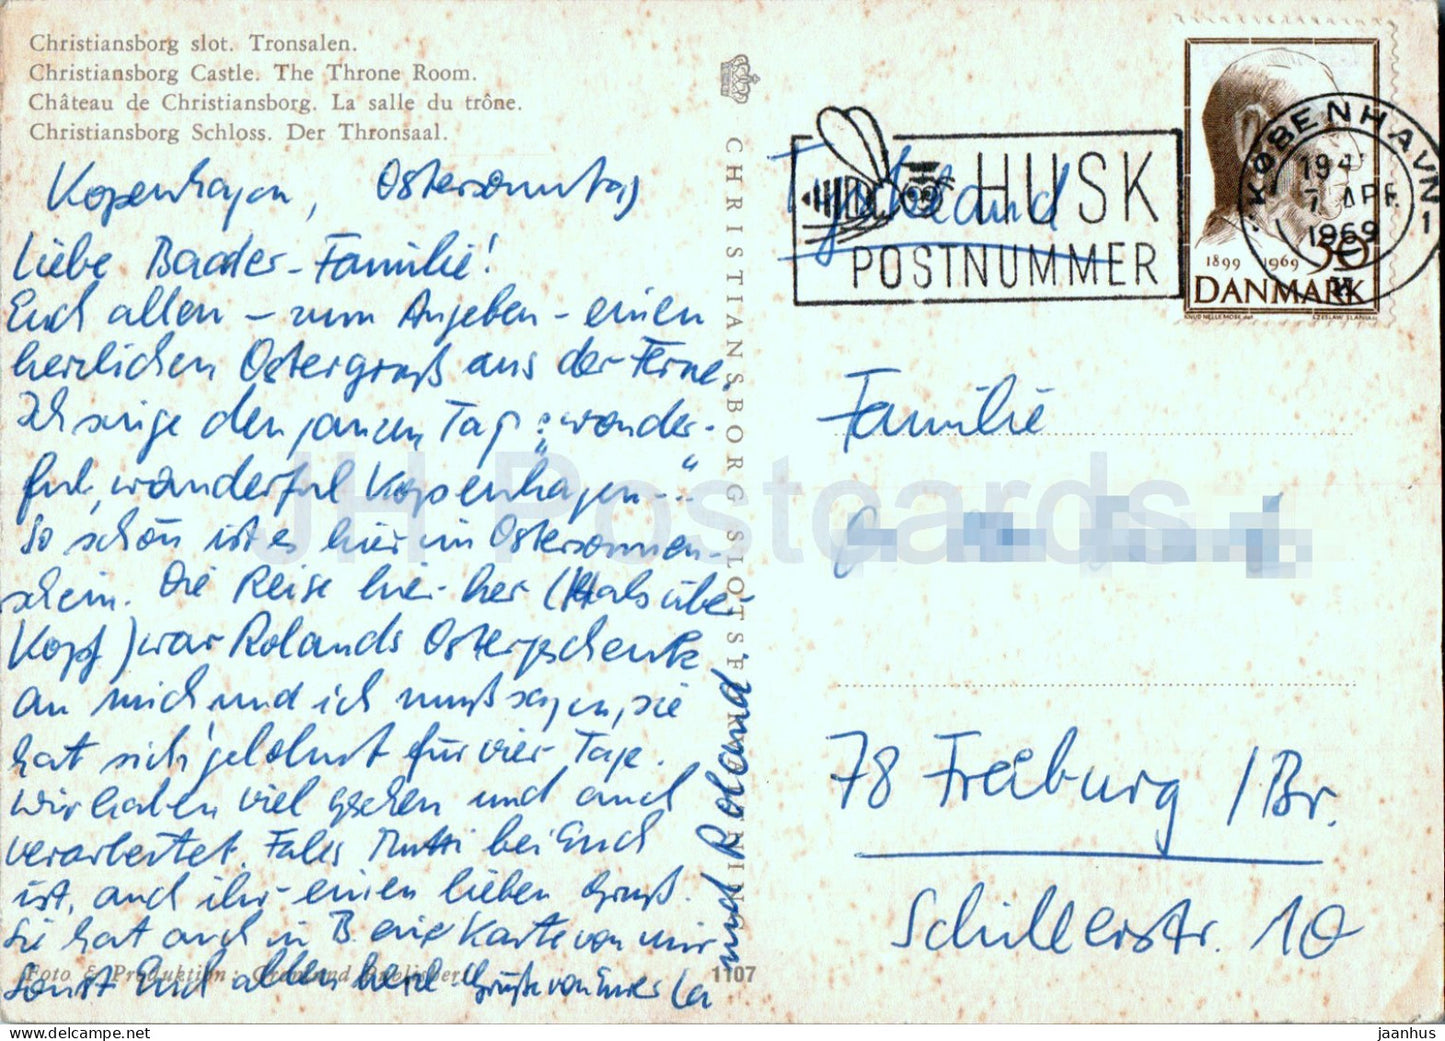 Christiansborg slot. Tronsalen.
Christiansborg Castle. The Throne Room.
Château de Christiansborg. La salle du trône.
Christiansborg Schloss. Der Thronsaal.
Kopenhagen, Ostersonntag
Liebe Baader-Familie!
Euch allen – zum Angeben – einen
herzlichen Ostergruß aus der Ferne.
Ich singe den ganzen Tag: „wonder-
ful, wonderful Kopenhagen --“
So schön ist es hier im Ostersonnen-
schein. Die Reise hier-her (Hals über
Kopf) war Rolands Ostergeschenk
an mich und ich muß sagen, sie
hat sich gelohnt für vier Tage.
Wir haben viel gesehen und auch
verarbeitet. Falls Mutti bei Euch
ist, auch ihr einen lieben Gruß.
Sie hat auch in B. eine Karte von mir
Sonst Euch allen herzl. Grüße von Eurer
und Roland
CHRISTIANSBORG SLOTS
Foto & Produktion: Grønlund
1107
HUSK
POSTNUMMER
KØBENHAVN
7 APR
1969
1899 1969
DANMARK
Familie
78 Freiburg /Br.
Schillerstr. 10
JH Postcards
jaanhus